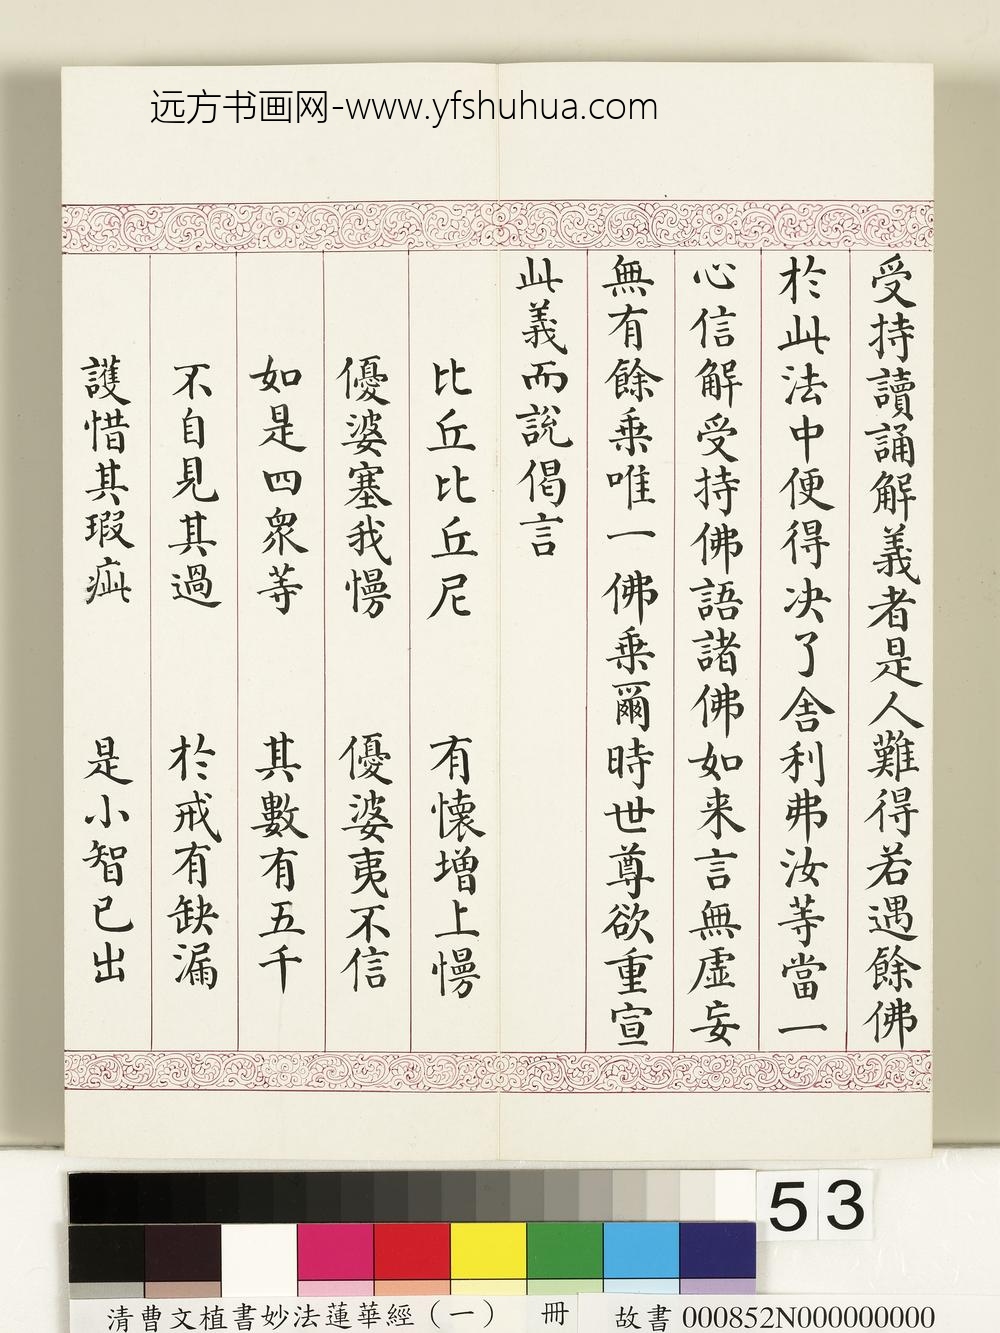 远方书画网-www.yfshuhua.com
受持讀誦解義者是人難得若遇餘佛
於此法中便得决了舎利弗汝等當一
心信解受持佛語諸佛如来言無虛妄
無有餘乗唯一佛乗爾時世尊欲重宣
此義而說偈言
比丘比丘尼 有懷增上慢
優婆塞我慢 優婆夷不信
如是四眾等 其數有五千
不自見其過 於戒有缺漏
護惜其瑕疵 是小智已出
53
清曹文植書妙法蓮華經（一） 冊 故書 000852N000000000